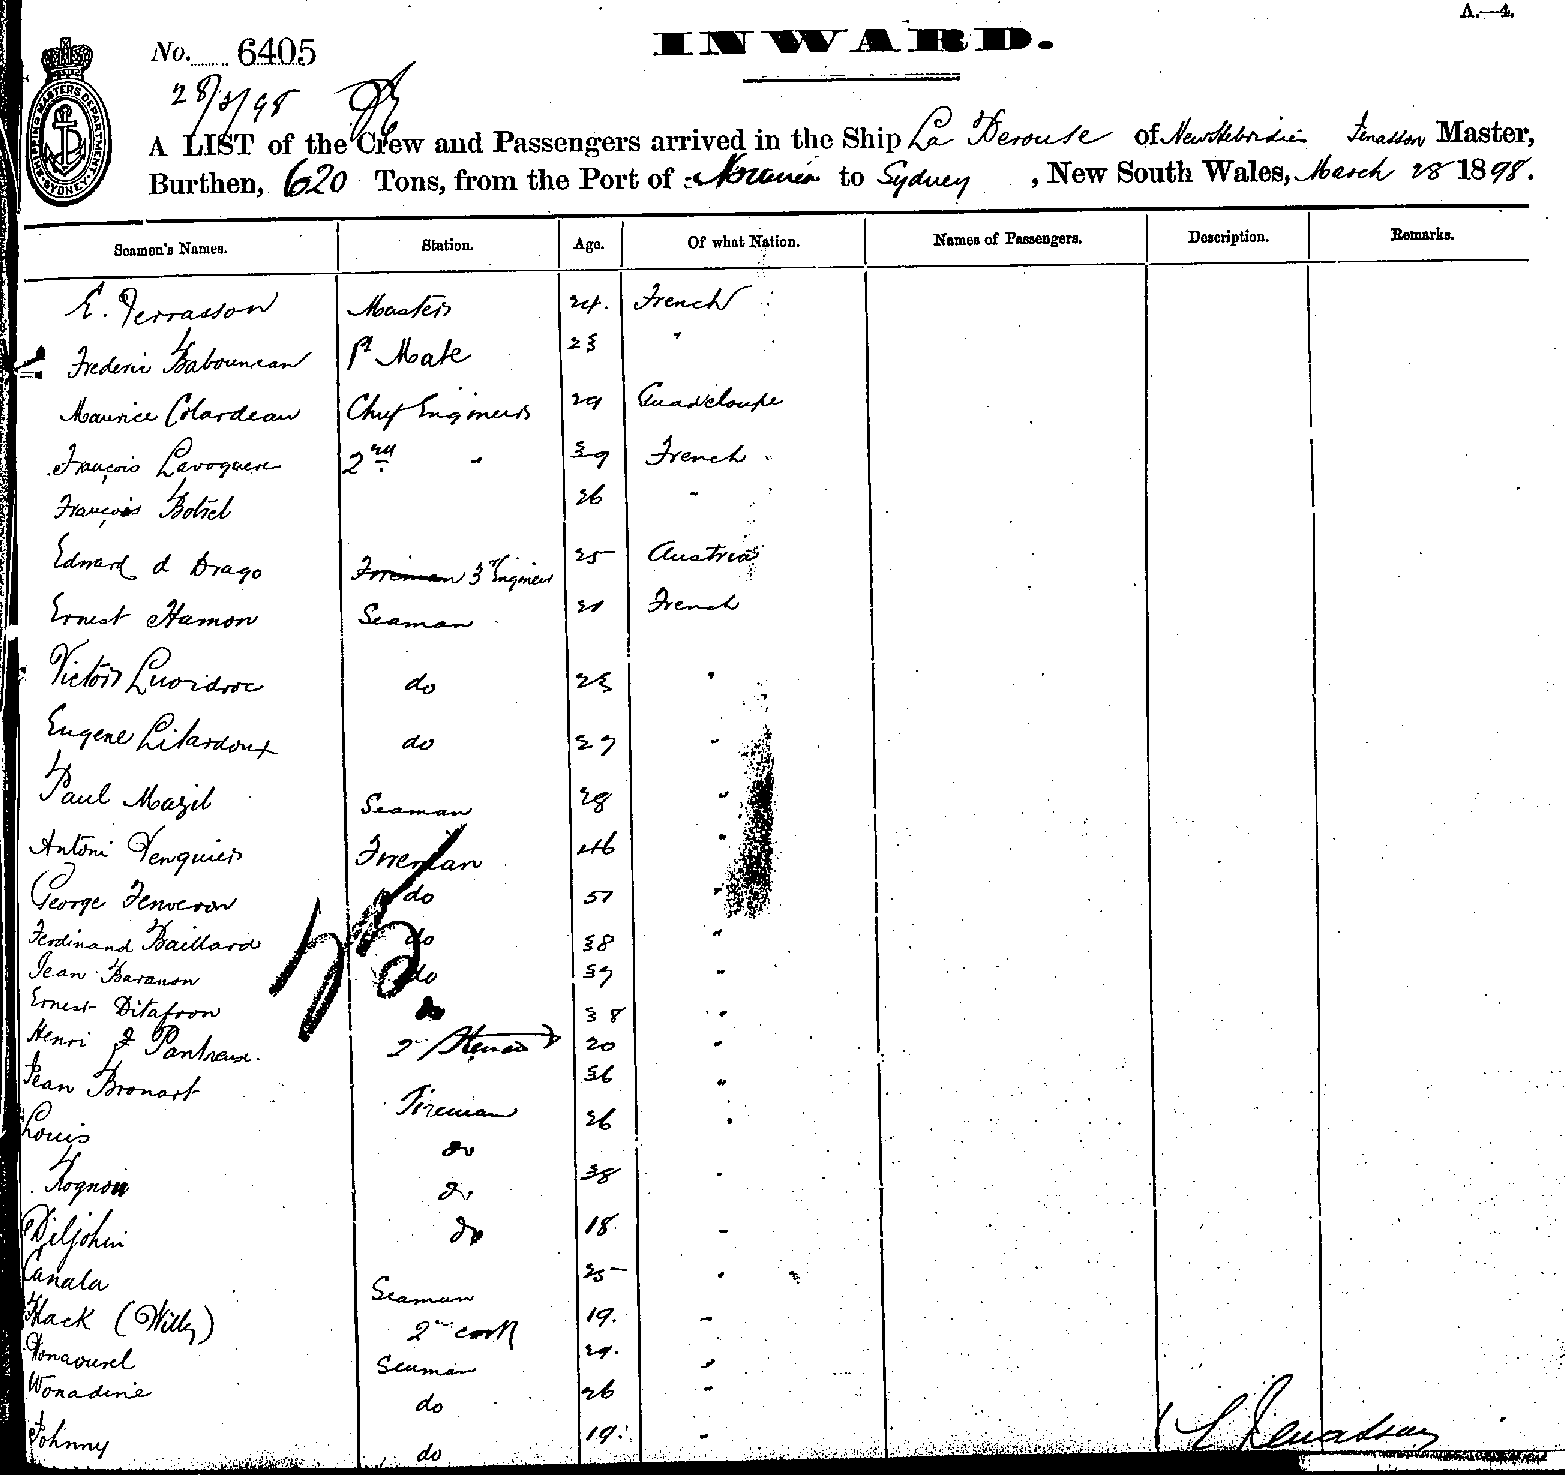 A.—4.
No. 6405
INWARD.
28/3/98
SHIPPING MASTERS DEPARTMENT SYDNEY
A LIST of the Crew and Passengers arrived in the Ship La Perouse of New Hebrides Master,
Burthen, 620 Tons, from the Port of Noumea to Sydney, New South Wales, March 28 1898.
Seamen's Names. Station. Age. Of what Nation. Names of Passengers. Description. Remarks.
E. Terrasson Master 24. French
Frederic 1st Mate 23 "
Maurice Colardeau Chief Engineer 29 Guadeloupe
François Lavoquere 2nd " 39 French
François Botrel 26 "
Edward d Drago Fireman 3rd Engineer 25 Austria
Ernest Hamon Seaman French
Victor do 23 "
Eugene Litardoux do 27 "
Paul Mazil Seaman 28 "
Antoni Fireman 46 "
George do 51 "
Ferdinand Baillard do 38 "
Jean do 37 "
Ernest Ditafron do 38 "
Henri 2nd Steward 20 "
Jean Bronart 36 "
Louis Fireman 26 "
Rognon do 38 "
Diljohn do 18 "
Canala do 25 "
Hack (Willy) Seaman 19. "
2nd cook 29. "
Wonadine Seaman 26 "
Johnny do 19. "
do